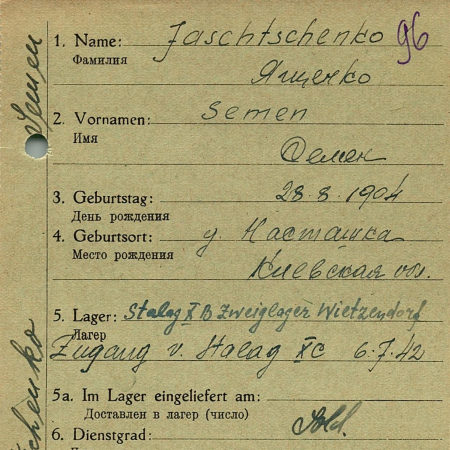 Semen
1. Name: Jaschtschenko 96
Фамилия
Ященко
2. Vornamen: Semen
Имя
Семен
3. Geburtstag: 28.8.1904
День рождения
4. Geburtsort: д. Насташка
Место рождения
Киевская обл.
5. Lager: Stalag X B Zweiglager Wietzendorf
Лагер
Zugang v. Stalag XC 6.7.42
5a. Im Lager eingeliefert am:
Доставлен в лагер (число)
6. Dienstgrad: Sold.